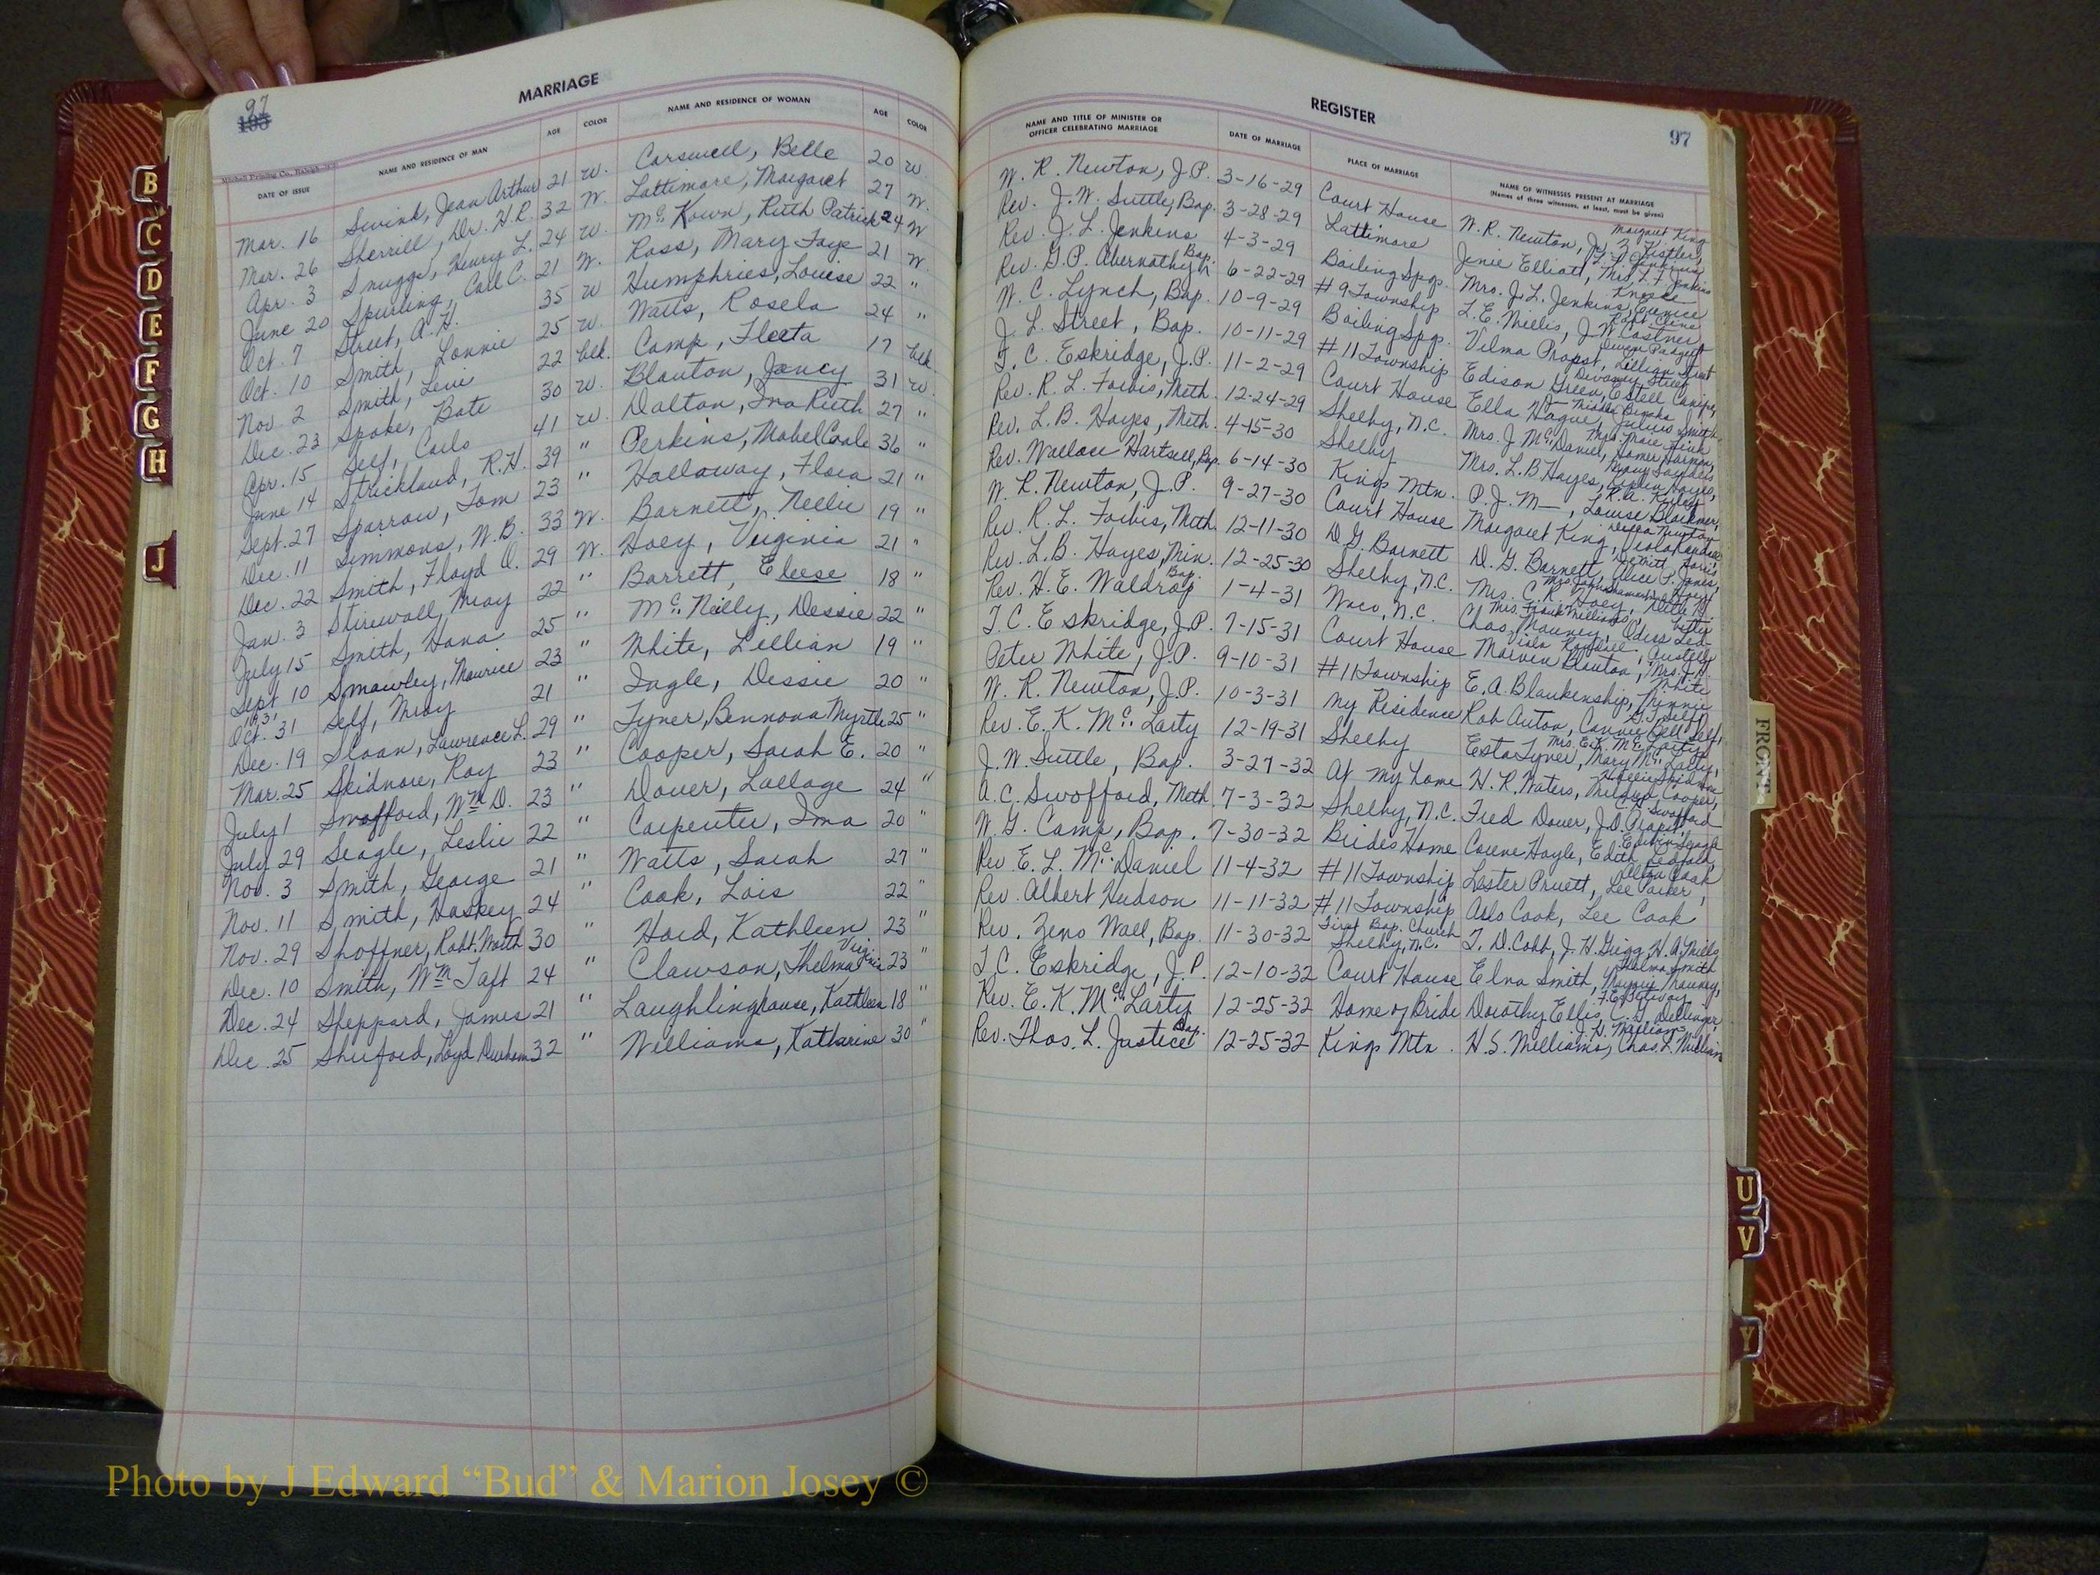 97
195
MARRIAGE
Mitchell Printing Co., Raleigh
DATE OF ISSUE NAME AND RESIDENCE OF MAN AGE COLOR NAME AND RESIDENCE OF WOMAN AGE COLOR
Mar. 16 Swink, Jean Arthur 21 W. Carswell, Belle 20 W
Mar. 26 Sherrill, Dr. H.R. 32 W. Lattimore, Margaret 27 W.
Apr. 3 Smugge, Henry L. 24 W. McKown, Ruth Patrick 24 W
June 20 Spurling, Carl C. 21 W. Ross, Mary Faye 21 W.
Oct. 7 Street, A.H. 35 W Humphries, Louise 22 "
Oct. 10 Smith, Lonnie 25 W. Watts, Rosela 24 "
Nov. 2 Smith, Levi 22 blk. Camp, Fleeta 17 blk
Dec. 23 Spake, Bate 30 W. Blanton, Jancy 31 W.
Apr. 15 Self, Carlo 41 W. Dalton, Ira Ruth 27 "
June 14 Strickland, R.H. 39 " Perkins, Mabel Coale 36 "
Sept. 27 Sparrow, Tom 23 " Holloway, Flora 21 "
Dec. 11 Simmons, W.B. 33 W. Barnett, Nellie 19 "
Dec. 22 Smith, Floyd O. 29 W. Hoey, Virginia 21 "
Jan. 3 Stirewall, May 22 " Barrett, Eleese 18 "
July 15 Smith, Hana 25 " McNeilly, Dessie 22 "
Sept 10 Smawley, Maurice 23 " White, Lillian 19 "
1931
Oct. 31 Self, May 21 " Ingle, Dessie 20 "
Dec. 19 Sloan, Lawrence L. 29 " Tyner, Bennona Myrtle 25 "
Mar. 25 Skidmore, Roy 23 " Cooper, Sarah E. 20 "
July 1 Swofford, Wm D. 23 " Dover, Lallage 24 "
July 29 Seagle, Leslie 22 " Carpenter, Ima 20 "
Nov. 3 Smith, George 21 " Watts, Sarah 27 "
Nov. 11 Smith, Haskey 24 " Cook, Lois 22 "
Nov. 29 Shoffner, Robt. Worth 30 " Hord, Kathleen 23 "
Dec. 10 Smith, Wm Taft 24 " Clawson, Thelma Virginia 23 "
Dec. 24 Sheppard, James 21 " Laughlinghouse, Kathleen 18 "
Dec. 25 Shuford, Loyd Durham 32 " Williams, Katharine 30 "
REGISTER
97
NAME AND TITLE OF MINISTER OR OFFICER CELEBRATING MARRIAGE DATE OF MARRIAGE PLACE OF MARRIAGE NAME OF WITNESSES PRESENT AT MARRIAGE
(Names of three witnesses, at least, must be given)
W. R. Newton, J.P. 3-16-29 Court House W.R. Newton, Margaret King
Rev. J.W. Suttle, Bap. 3-28-29 Lattimore Janie Elliott
Rev. J. L. Jenkins Bap. 4-3-29 Boiling Spgs. Mrs. J.L. Jenkins, Eunice
Rev. G.P. Abernathy 6-22-29 #9 Township L.E. Willis
W. C. Lynch, Bap. 10-9-29 Boiling Spgs. Vilma Propst, Lillian Street
J. L. Street, Bap. 10-11-29 #11 Township Edison Green, Estell Canipe,
T. C. Eskridge, J.P. 11-2-29 Court House Ella Hague, Julius Smith
Rev. R. L. Forbis, Meth. 12-24-29 Shelby, N.C. Mrs. J. McDaniel, Homer Harmon,
Rev. L.B. Hayes, Meth. 4-15-30 Shelby Mrs. L.B Hayes
Rev. Wallace Hartsell, Bap. 6-14-30 Kings Mtn. P.J.M—, Louise Blackmer,
W. R. Newton, J.P. 9-27-30 Court House Margaret King
Rev. R. L. Forbis, Meth. 12-11-30 D.G. Barnett D. G. Barnett, Alice P. Jones,
Rev. L.B. Hayes, Min. 12-25-30 Shelby, N.C. Mrs. C. R. Hoey
Rev. H. E. Waldrop Bap. 1-4-31 Waco, N.C. Chas. Mauney
T. C. Eskridge, J.P. 7-15-31 Court House Marvin Blanton
Peter White, J.P. 9-10-31 #11 Township E. A. Blankenship, Minnie White
W. R. Newton, J.P. 10-3-31 my Residence Rob Auton, Connie Bell Self,
Rev. E. K. McLarty 12-19-31 Shelby Esta Tyner, Mary McLarty,
J. W. Suttle, Bap. 3-27-32 At my home H. R. Waters, Mildred Cooper,
A. C. Swofford, Meth 7-3-32 Shelby, N.C. Fred Dover, J.D. Propst,
W. G. Camp, Bap. 7-30-32 Brides Home Corene Hoyle, Edith Ledford,
Rev E. L. McDaniel 11-4-32 #11 Township Lester Pruett, Lee Parker,
Rev. Albert Hudson 11-11-32 #11 Township Arlo Cook, Lee Cook
Rev. Zeno Wall, Bap. 11-30-32 First Bap. Church Shelby, N.C. T. D. Cobb, J. H. Grigg, H. A. Mills
T. C. Eskridge, J.P. 12-10-32 Court House Elna Smith, Thelma Smith
Rev. E. K. McLarty 12-25-32 Home of Bride Dorothy Ellis, C. G. Dellinger
Rev. Thos. L. Justice Bap. 12-25-32 Kings Mtn. H. S. Williams, Chas. L. Williams
B
C
D
E
F
G
H
J
FRONT
U
V
Y
Photo by J Edward “Bud” & Marion Josey ©